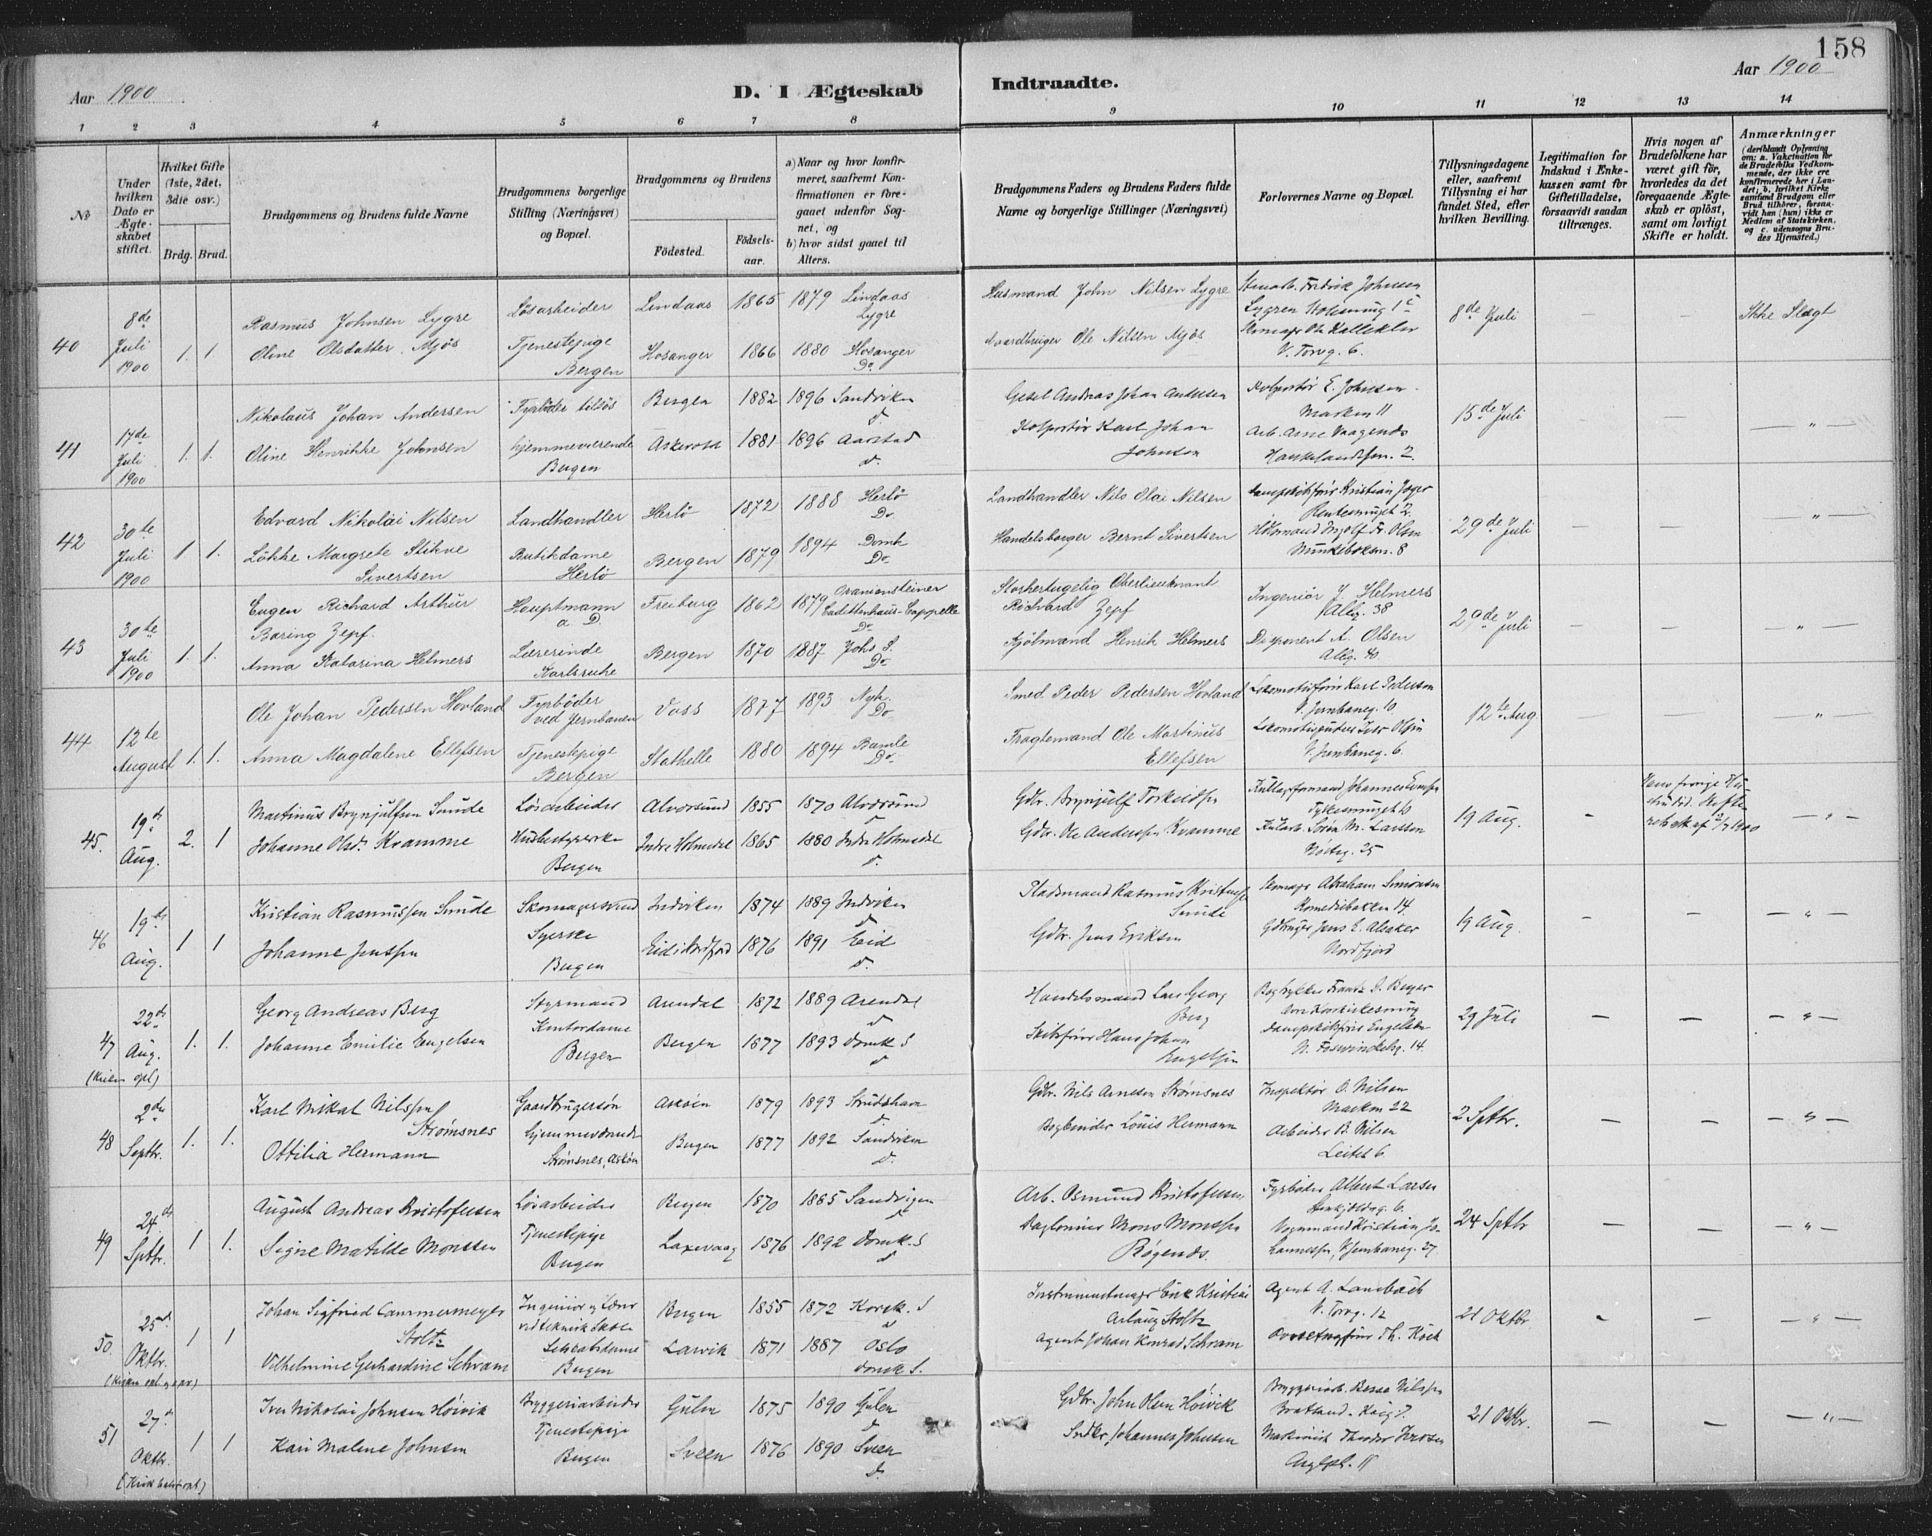 158
Aar 1900
D. I Ægteskab Indtraadte.
Aar 1900
1 2 3 4 5 6 7 8 9 10 11 12 13 14
No
Under hvilken Dato er Ægteskabet stiftet.
Hvilket Gifte (1ste, 2det, 3die osv.)
Brdg. Brud.
Brudgommens og Brudens fulde Navne
Brudgommens borgerlige Stilling (Næringsvei) og Bopæl.
Brudgommens og Brudens
Fødested.
Fødsels-aar.
a) Naar og hvor konfirmeret, saafremt Konfirmationen er foregaaet udenfor Sognet, og
b) hvor sidst gaaet til Alters.
Brudgommens Faders og Brudens Faders fulde Navne og borgerlige Stillinger (Næringsvei)
Forlovernes Navne og Bopæl.
Tillysningsdagene eller, saafremt Tillysning ei har fundet Sted, efter hvilken Bevilling.
Legitimation for Indskud i Enkekassen samt for Giftetilladelse, forsaavidt saadan tiltrænges.
Hvis nogen af Brudefolkene har været gift før, hvorledes da det foregaaende Ægteskab er opløst, samt om lovligt Skifte er holdt.
Anmærkninger
(deriblandt Oplysning om: a. Vakcination for de Brudefolks Vedkommende, der ikke ere konfirmerede her i Landet; b. hvilket Kirkesamfund Brudgom eller Brud tilhører, forsaavidt han (hun) ikke er Medlem af Statskirken, og c. udensogns Brudes Hjemsted.)
40 8de Juli 1900 1. 1
Rasmus Johnsen Lygre Løsarbeider Lindaas 1865 1879 Lindaas Lygre
Husmand John Nilsen Lygre
Stenarb. Fredrik Johnsen
8de Juli
Ikke Slægt
Oline Olsdatter Mjøs Tjenestepige Bergen Hosanger 1866 1880 Hosanger Do
Gaardbruger Ole Nilsen Mjøs
V. Torvg. 6.
41 17de Juli 1900 1. 1.
Nikolaus Johan Andersen Fyrbøder Bergen 1882 1896 Sandviken d.
Gesel Andreas Johan Andersen
Kolportør E. Johnsen Marken 11
15de Juli
Oline Henrikke Johnsen hjemmeværende Bergen Askvold 1881 1896 Aarstad d.
Kolportør Karl Johan Johnsen
Arb. Arne Vaagenes
42 30te Juli 1900 1 1.
Edvard Nikolai Nilsen Landhandler Herlø 1872 1888 Herlø Do
Landhandler Nils Olai Nilsen
Dampskibsfører Kristian Jæger
29de Juli
Løkke Margrete Stikve Sivertsen Butikdame Herlø Bergen 1879 1894 Domk Do
Handelsborger Bernt Sivertsen
43 30te Juli 1900 1. 1.
Eugen Richard Arthur Baring Zepf. Hauptmann a D. Freiburg 1862 1879 Oraniensteiner Cadettenhaus-Cappelle Do
Storhertugelig Oberlieutnant Richard Zepf
Ingeniør J. Helmers Allég. 38
29de Juli
Anna Katarina Helmers Lærerinde Karlsruhe Bergen 1870 1887 Johs S. Do
Kjølmand Henrik Helmers
Disponent A. Olsen Allég. 40
44 12te August 1. 1.
Ole Johan Pedersen Hovland Fyrbøder ved Jernbanen Voss 1877 1893 Nyk. Do
Smed Peder Pedersen Hovland
Lokomotivfører Karl Pedersen V. Jernbaneg. 10
12te Aug
Anna Magdalene Ellefsen Tjenestepige Bergen Stathelle 1880 1894 Bamle Do
Fragtemand Ole Martinus Ellefsen
V. Jernbaneg. 6.
45. 19de Aug. 2. 1
Martinus Brynjulfsen Sunde Løsarbeider Alversund 1855 1870 Alversund d
Gdbr. Brynjulf Torkelsen
19 Aug.
Johanne Olsd. Kvamme Husbestyrerske Bergen Indre Holmedal 1865 1880 Indre Holmedal d.
Gdbr. Ole Andersen Kvamme
Kularb. Søren M. Larssen Nøsteg. 25
46 19de Aug. 1 1
Kristian Rasmussen Sunde Skomagersvend Indviken 1874 1889 Indviken d
Pladsmand Rasmus Kristensen Sunde
Skomager Abraham Simonsen Komediebakken 14.
19 Aug.
Johanne Jenssen Syerske Bergen Eid i Nordfjord 1876 1891 Eid d.
Gdbr. Jens Eriksen
Gdbruger Jens E. Alsaker Nordfjord
47 22de Aug. 1. 1.
(Kirken opl)
Georg Andreas Berg Styrmand Arendal 1872 1889 Arendal d
Handelsmand Lars Georg Berg
29 Juli
Johanne Emilie Engelsen Kontordame Bergen Bergen 1877 1893 Domk S d
Skibsfører Hans Johan Engelsen
Dampskibsfører Engelsen
48 2den Septbr. 1. 1.
Karl Mikal Nilssen Strømsnes Gaardbrugersøn Askøen 1879 1893 Strudshavn d
Gdbr. Nils Arnesen Strømsnes
Inspektør O. Nilsen Marken 22
2 Septbr.
Ottilia Hermann Hjemmeværende Strømsnes, Askøen Bergen 1877 1892 Sandviken d.
Bogbinder Louis Hermann
Arbeider B. Nilsen Leitet 6.
49 24de Septbr. 1 1.
August Andreas Kristofersen Løsarbeider Bergen 1870 1885 Sandvigen d
Arb. Osmund Kristofersen
Fyrbøder Albert Larsen
24 Septbr
Signe Matilde Monsen Tjenestepige Bergen Laxevaag 1876 1892 Domk. S d
Daglønner Mons Monssen Bøgenes.
Vognmand Kristian Johannessen, V. Jernbaneg. 27
50. 25de Oktbr. 1 1
Johan Sigfried Cammermeyer Stoltz Ingeniør og Lærer ved teknisk Skole Bergen 1855 1872 Korsk. S d
Instrumentmager Erik Kristian Stoltz
Agent A. Lambach V. Torvg. 12
21 Oktbr
Vilhelmine Gerhardine Schram Bergen Larvik 1871 1887 Oslo Domk S.
Agent Johan Konrad Schram
51 27de Oktbr. 1 1
Iver Nikolai Johnsen Høivik Bryggeriarbeider Gulen 1875 1890 Gulen d
Gdbr. John Olsen Høivik
Bryggeriarb. Nilssen
21 Oktbr.
Kari Malene Johnsen Tjenestepige Bergen Sveen 1876 1890 Sveen d.
Indkr. Johannes Johnsen